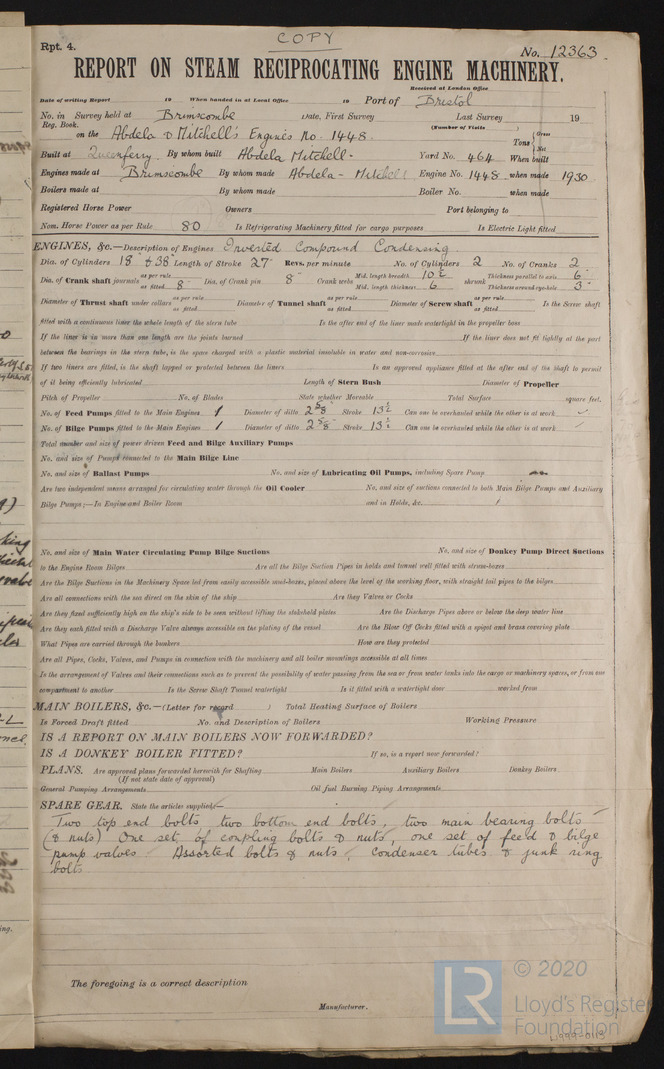 COPY
Rpt. 4.
No. 12363
REPORT ON STEAM RECIPROCATING ENGINE MACHINERY.
Received at London Office
Date of writing Report 19 When handed in at Local Office 19 Port of Bristol
No. in Survey held at Brimscombe Date, First Survey Last Survey 19
Reg. Book. (Number of Visits )
on the Abdela & Mitchell's Engines No. 1448. Tons { Gross Net
Built at Queenferry. By whom built Abdela Mitchell - Yard No. 464 When built
Engines made at Brimscombe By whom made Abdela - Mitchell Engine No. 1448 when made 1930
Boilers made at By whom made Boiler No. when made
Registered Horse Power Owners Port belonging to
Nom. Horse Power as per Rule 80 Is Refrigerating Machinery fitted for cargo purposes Is Electric Light fitted
ENGINES, &c.—Description of Engines Inverted Compound Condensing
Dia. of Cylinders 18 & 38" Length of Stroke 27" Revs. per minute No. of Cylinders 2 No. of Cranks 2
Dia. of Crank shaft journals as per rule as fitted 8" Dia. of Crank pin 8" Crank webs Mid. length breadth 10½ Mid. length thickness 6 shrunk Thickness parallel to axis 6" Thickness around eye-hole 3"
Diameter of Thrust shaft under collars as per rule as fitted Diameter of Tunnel shaft as per rule as fitted Diameter of Screw shaft as per rule as fitted Is the Screw shaft
fitted with a continuous liner the whole length of the stern tube Is the after end of the liner made watertight in the propeller boss
If the liner is in more than one length are the joints burned If the liner does not fit tightly at the part
between the bearings in the stern tube, is the space charged with a plastic material insoluble in water and non-corrosive
If two liners are fitted, is the shaft lapped or protected between the liners Is an approved appliance fitted at the after end of the shaft to permit
of it being efficiently lubricated Length of Stern Bush Diameter of Propeller
Pitch of Propeller No. of Blades State whether Moveable Total Surface square feet.
No. of Feed Pumps fitted to the Main Engines 1 Diameter of ditto 2⅝" Stroke 13½ Can one be overhauled while the other is at work
No. of Bilge Pumps fitted to the Main Engines 1 Diameter of ditto 2⅝" Stroke 13½ Can one be overhauled while the other is at work
Total number and size of power driven Feed and Bilge Auxiliary Pumps
No. and size of Pumps connected to the Main Bilge Line
No. and size of Ballast Pumps No. and size of Lubricating Oil Pumps, including Spare Pump
Are two independent means arranged for circulating water through the Oil Cooler No. and size of suctions connected to both Main Bilge Pumps and Auxiliary
Bilge Pumps;—In Engine and Boiler Room and in Holds, &c.
No. and size of Main Water Circulating Pump Bilge Suctions No. and size of Donkey Pump Direct Suctions
to the Engine Room Bilges Are all the Bilge Suction Pipes in holds and tunnel well fitted with strum-boxes
Are the Bilge Suctions in the Machinery Space led from easily accessible mud-boxes, placed above the level of the working floor, with straight tail pipes to the bilges
Are all connections with the sea direct on the skin of the ship Are they Valves or Cocks
Are they fixed sufficiently high on the ship's side to be seen without lifting the stokehold plates Are the Discharge Pipes above or below the deep water line
Are they each fitted with a Discharge Valve always accessible on the plating of the vessel Are the Blow Off Cocks fitted with a spigot and brass covering plate
What Pipes are carried through the bunkers How are they protected
Are all Pipes, Cocks, Valves, and Pumps in connection with the machinery and all boiler mountings accessible at all times
Is the arrangement of Valves and their connections such as to prevent the possibility of water passing from the sea or from water tanks into the cargo or machinery spaces, or from one
compartment to another Is the Screw Shaft Tunnel watertight Is it fitted with a watertight door worked from
MAIN BOILERS, &c.—(Letter for record ) Total Heating Surface of Boilers
Is Forced Draft fitted No. and Description of Boilers Working Pressure
IS A REPORT ON MAIN BOILERS NOW FORWARDED?
IS A DONKEY BOILER FITTED? If so, is a report now forwarded?
PLANS. Are approved plans forwarded herewith for Shafting Main Boilers Auxiliary Boilers Donkey Boilers
(If not state date of approval)
General Pumping Arrangements Oil fuel Burning Piping Arrangements
SPARE GEAR. State the articles supplied:—
Two top end bolts two bottom end bolts, two main bearing bolts
(& nuts) One set of coupling bolts & nuts, one set of feed & bilge
pump valves Assorted bolts & nuts, Condenser tubes & junk ring
bolts
The foregoing is a correct description
Manufacturer.
LR
© 2020
Lloyd's Register
Foundation